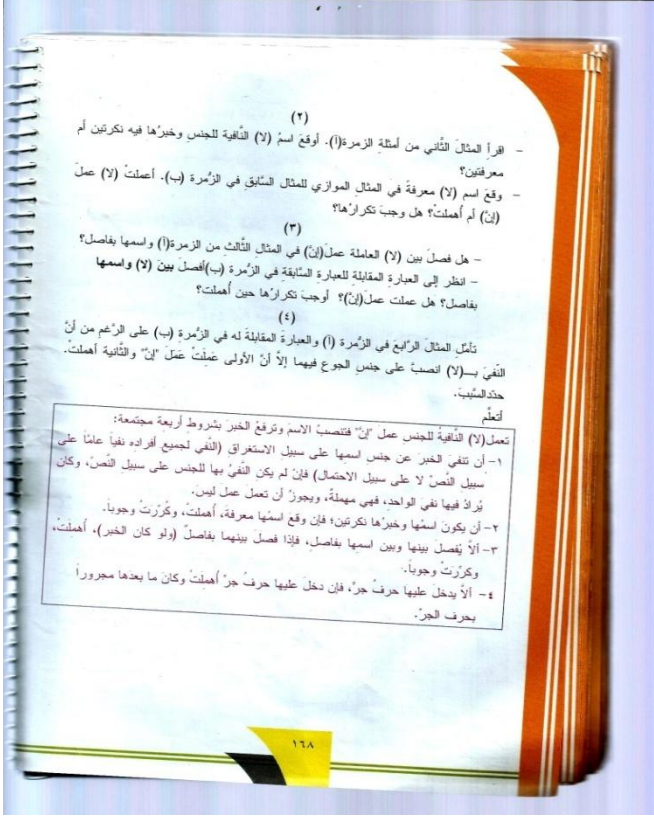 (٢)
- اقرأِ المثالَ الثَّاني من أمثلةِ الزمرة(أ). أوقعَ اسمُ (لا) النَّافية للجنسِ وخبرُها فيه نكرتين أم
معرفتين؟
- وقعَ اسم (لا) معرفةً في المثالِ الموازي للمثال السَّابقِ في الزُّمرة (ب). أعملتْ (لا) عملَ
(إنَّ) أم أُهملتْ؟ هل وجبَ تكرارُها؟
(٣)
- هل فصلَ بين (لا) العاملة عملَ(إنَّ) في المثالِ الثَّالث من الزمرة(أ) واسمها بفاصل؟
- انظر إلى العبارة المقابلةِ للعبارة السَّابقةِ في الزُّمرة (ب)أفصلَ بينَ (لا) واسمها
بفاصل؟ هل عملت عملَ(إنَّ)؟ أوجبَ تكرارُها حين أُهملت؟
(٤)
تأمَّلِ المثالَ الرَّابعَ في الزُّمرة (أ) والعبارةَ المقابلةَ له في الزُّمرة (ب) على الرَّغم من أنَّ
النَّفيَ بـــ(لا) انصبَّ على جنسِ الجوع فيهما إلاَّ أنَّ الأولى عَمِلتْ عَمَلَ "إنَّ" والثَّانية أهملتْ.
حدّدالسَّببَ.
أتعلَّم
تعمل(لا) النَّافيةُ للجنسِ عملَ "إنَّ" فتنصبُ الاسمَ وترفعُ الخبرَ بشروطٍ أربعة مجتمعة:
١- أن تنفيَ الخبرَ عن جنسِ اسمِها على سبيلِ الاستغراقِ (النَّفي لجميع أفراده نفياً عامّاً على
سبيلِ النَّصِّ لا على سبيلِ الاحتمال) فإن لم يكنِ النَّفيُ بها للجنسِ على سبيلِ النَّصِّ، وكان
يُرادُ فيها نفيَ الواحدِ، فهي مهملةٌ، ويجوزُ أن تعملَ عملَ ليسَ.
٢- أن يكونَ اسمُها وخبرُها نكرتين؛ فإن وقعَ اسمُها معرفة، أُهملتْ، وكُرِّرتْ وجوباً.
٣- ألاَّ يُفصلَ بينها وبين اسمها بفاصلٍ، فإذا فصلَ بينهما بفاصلٌ (ولو كان الخبر)، أُهملتْ،
وكرِّرتْ وجوباً.
٤- ألاَّ يدخلَ عليها حرفُ جرٍّ، فإن دخلَ عليها حرفُ جرٍّ أُهملتْ وكانَ ما بعدَها مجروراً
بحرف الجرِّ.
١٦٨